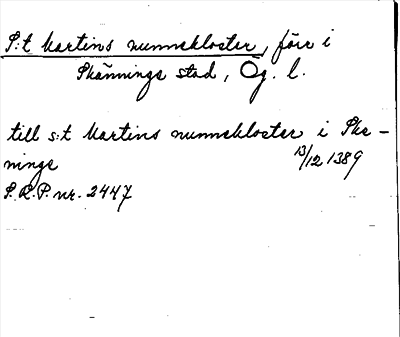 S:t Martins nunnekloster, förr i
Skännings stad, Ög. l.
till s:t Martins nunnekloster i Ske-
ninge 13/12 1389
S.R.P. nr. 2447